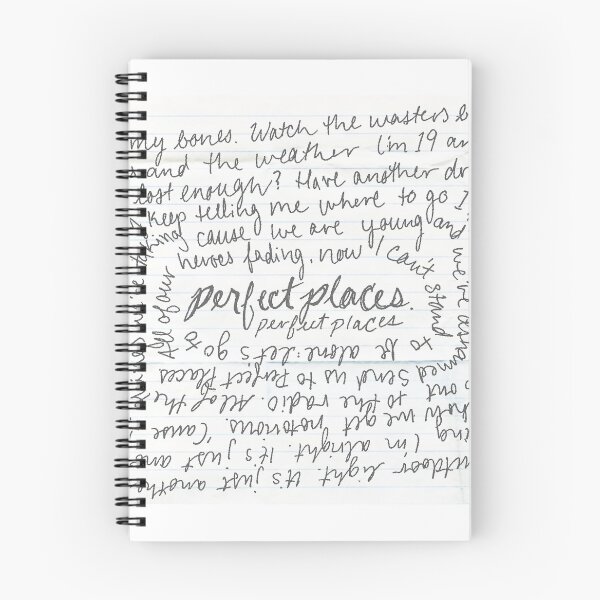 my bones. Watch the wasters b
t and the weather I'm 19 an
lost enough? Have another dr
keep telling me where to go I
cause we are young and we're ashamed
All of our heroes fading. now I can't stand to
perfect places.
perfect places
be alone. Let's go to
Send us to Perfect Places
to the radio. All of the
we get notorious. 'Cause
I'm alright. It's just ano
utdoor light. It's just anothe